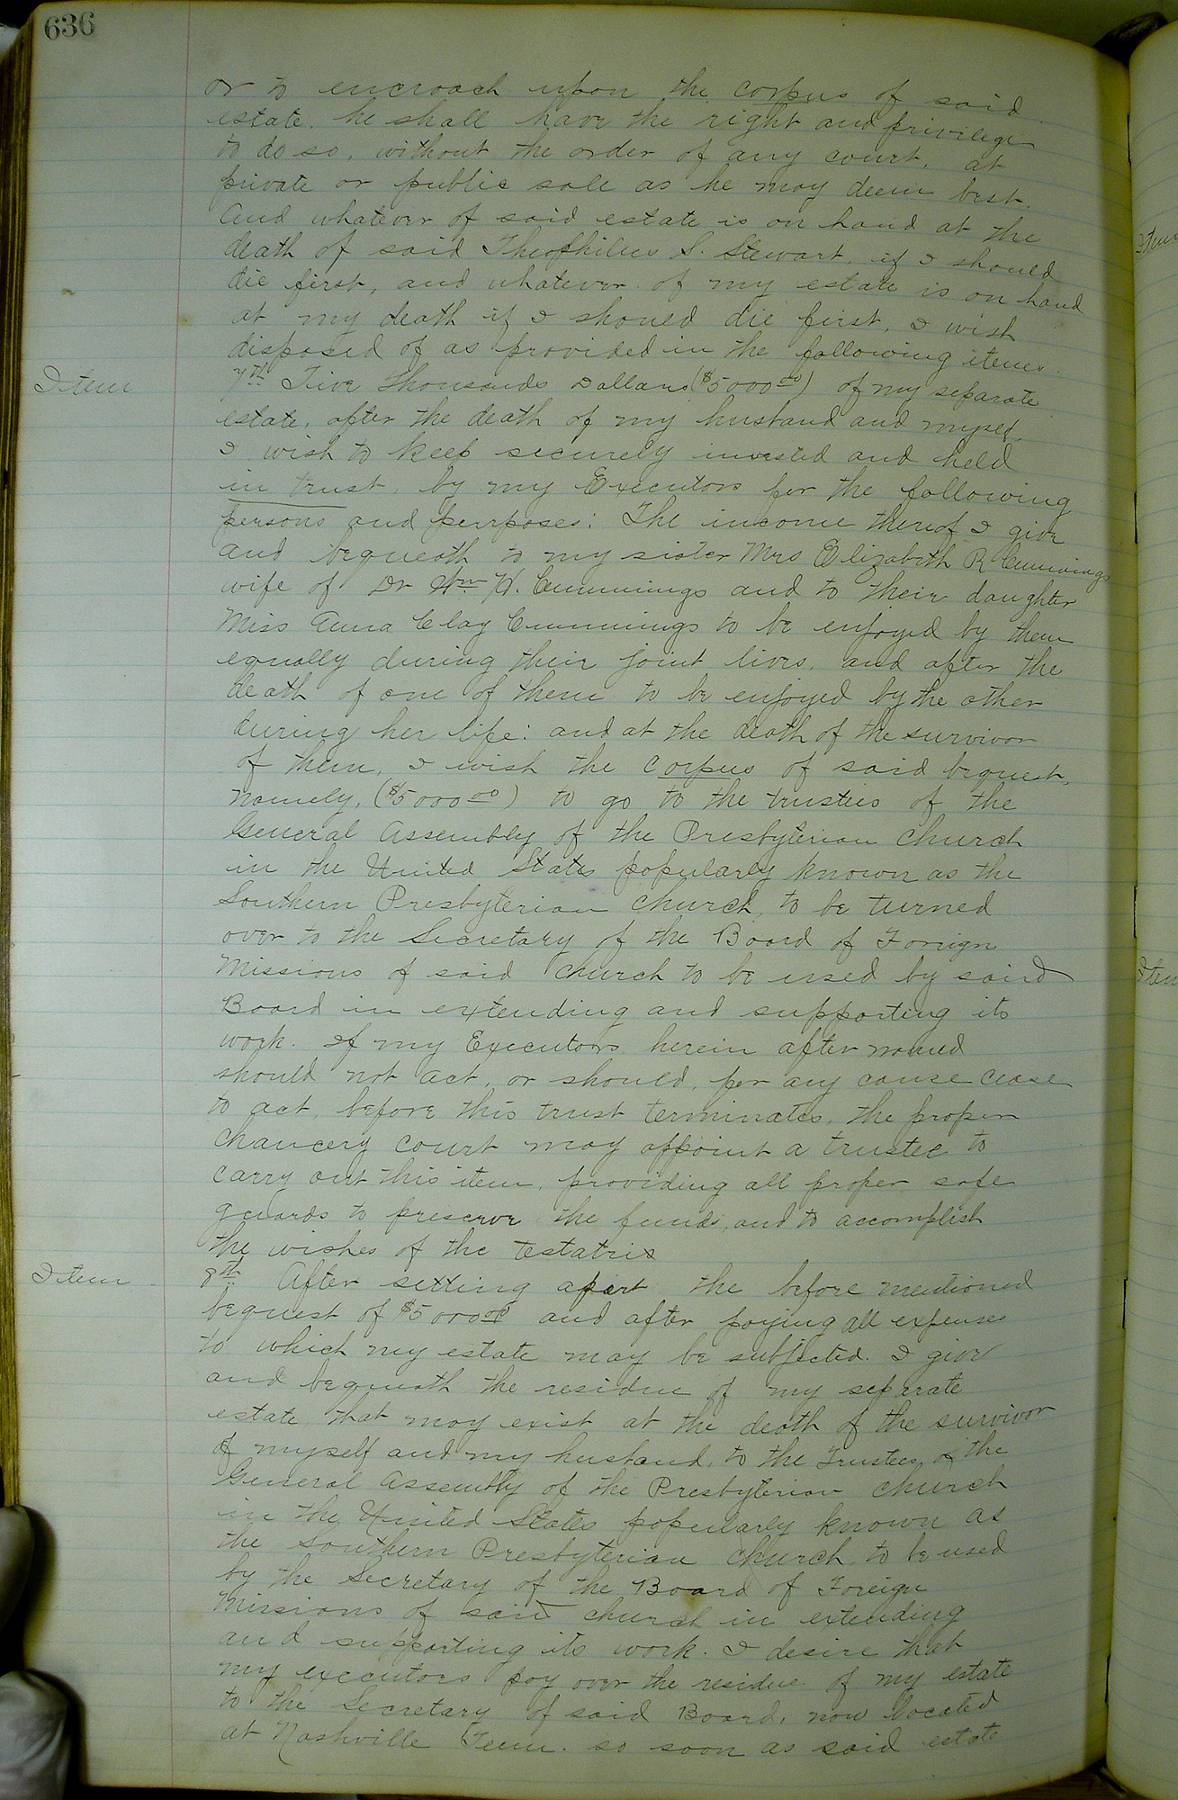 636
or to encroach upon the corpus of said
estate. he shall have the right and privilege
to do so, without the order of any court, at
private or public sale as he may deem best.
And whatever of said estate is on hand at the
death of said Theophilus S. Stewart, if I should
die first, and whatever of my estate is on hand
at my death if I should die first, I wish
disposed of as provided in the following items.
Item 7th Five thousands Dollars ($5000.00) of my separate
estate, after the death of my husband and myself,
I wish to keep securely invested and held
in trust, by my Executors for the following
persons and purposes: The income thereof I give
and bequeath to my sister Mrs Elizabeth R Cummings
wife of Dr Wm H. Cummings and to their daughter
Miss Anna Clay Cummings to be enjoyed by them
equally during their joint lives, and after the
death of one of them to be enjoyed by the other
during her life: and at the death of the survivor
of them, I wish the corpus of said bequest,
namely, ($5000.00) to go to the trustees of the
General Assembly of the Presbyterian church
in the United States popularly known as the
Southern Presbyterian church, to be turned
over to the Secretary of the Board of Foreign
Missions of said church to be used by said
Board in extending and supporting its
work. If my Executors herein after named
should not act, or should, for any cause cease
to act, before this trust terminates, the proper
chancery court may appoint a trustee to
carry out this item, providing all proper safe
guards to preserve the funds, and to accomplish
the wishes of the testatrix
Item 8th After setting apart the before mentioned
bequest of $5000.00 and after paying all expenses
to which my estate may be subjected. I give
and bequeath the residue of my separate
estate that may exist at the death of the survivor
of myself and my husband, to the Trustees of the
General Assembly of the Presbyterian church
in the United States popularly known as
the Southern Presbyterian church, to be used
by the Secretary of the Board of Foreign
Missions of said church in extending
and supporting its work. I desire that
my executors pay over the residue of my estate
to the Secretary of said Board, now located
at Nashville Tenn. so soon as said estate
Item
Item